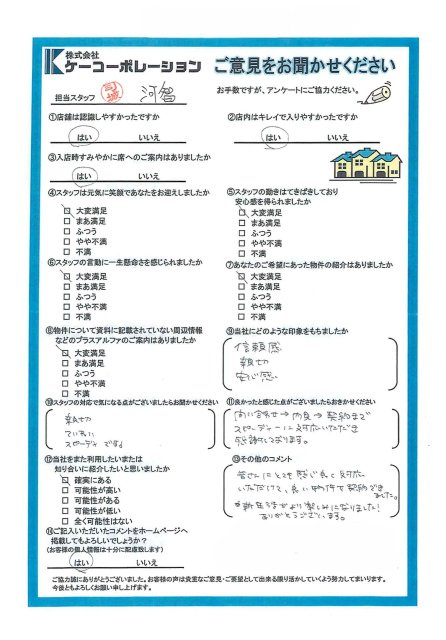 株式会社
ケーコーポレーション
ご意見をお聞かせください
担当スタッフ 河智
お手数ですが、アンケートにご協力ください。
①店舗は認識しやすかったですか
はい いいえ
②店内はキレイで入りやすかったですか
はい いいえ
③入店時すみやかに席へのご案内はありましたか
はい いいえ
④スタッフは元気に笑顔であなたをお迎えしましたか
大変満足
まあ満足
ふつう
やや不満
不満
⑤スタッフの動きはてきぱきしており
安心感を得られましたか
大変満足
まあ満足
ふつう
やや不満
不満
⑥スタッフの言動に一生懸命さを感じられましたか
大変満足
まあ満足
ふつう
やや不満
不満
⑦あなたのご希望にあった物件の紹介はありましたか
大変満足
まあ満足
ふつう
やや不満
不満
⑧物件について資料に記載されていない周辺情報
などのプラスアルファのご案内はありましたか
大変満足
まあ満足
ふつう
やや不満
不満
⑨当社にどのような印象をもちましたか
信頼感
親切
安心感
⑩スタッフの対応で気になる点がございましたらお聞かせください
親切
ていねい
スピーディです。
⑪良かったと感じた点がございましたらおきかせください
問い合わせ→内見→契約まで
スピーディーに対応いただき
感謝しております。
⑫当社をまた利用したいまたは
知り合いに紹介したいと思いましたか
確実にある
可能性が高い
可能性がある
可能性が低い
全く可能性はない
⑬その他のコメント
皆さんにとても感じ良く対応
いただけて、良い物件で契約できました。
新生活がより楽しみになりました!
ありがとうございます。
⑭ご記入いただいたコメントをホームページへ
掲載してもよろしいでしょうか?
(お客様の個人情報は十分に配慮致します)
はい いいえ
ご協力誠にありがとうございました。お客様の声は貴重なご意見・ご要望として出来る限り活かしていくよう努力してまいります。
今後ともよろしくお願い申し上げます。